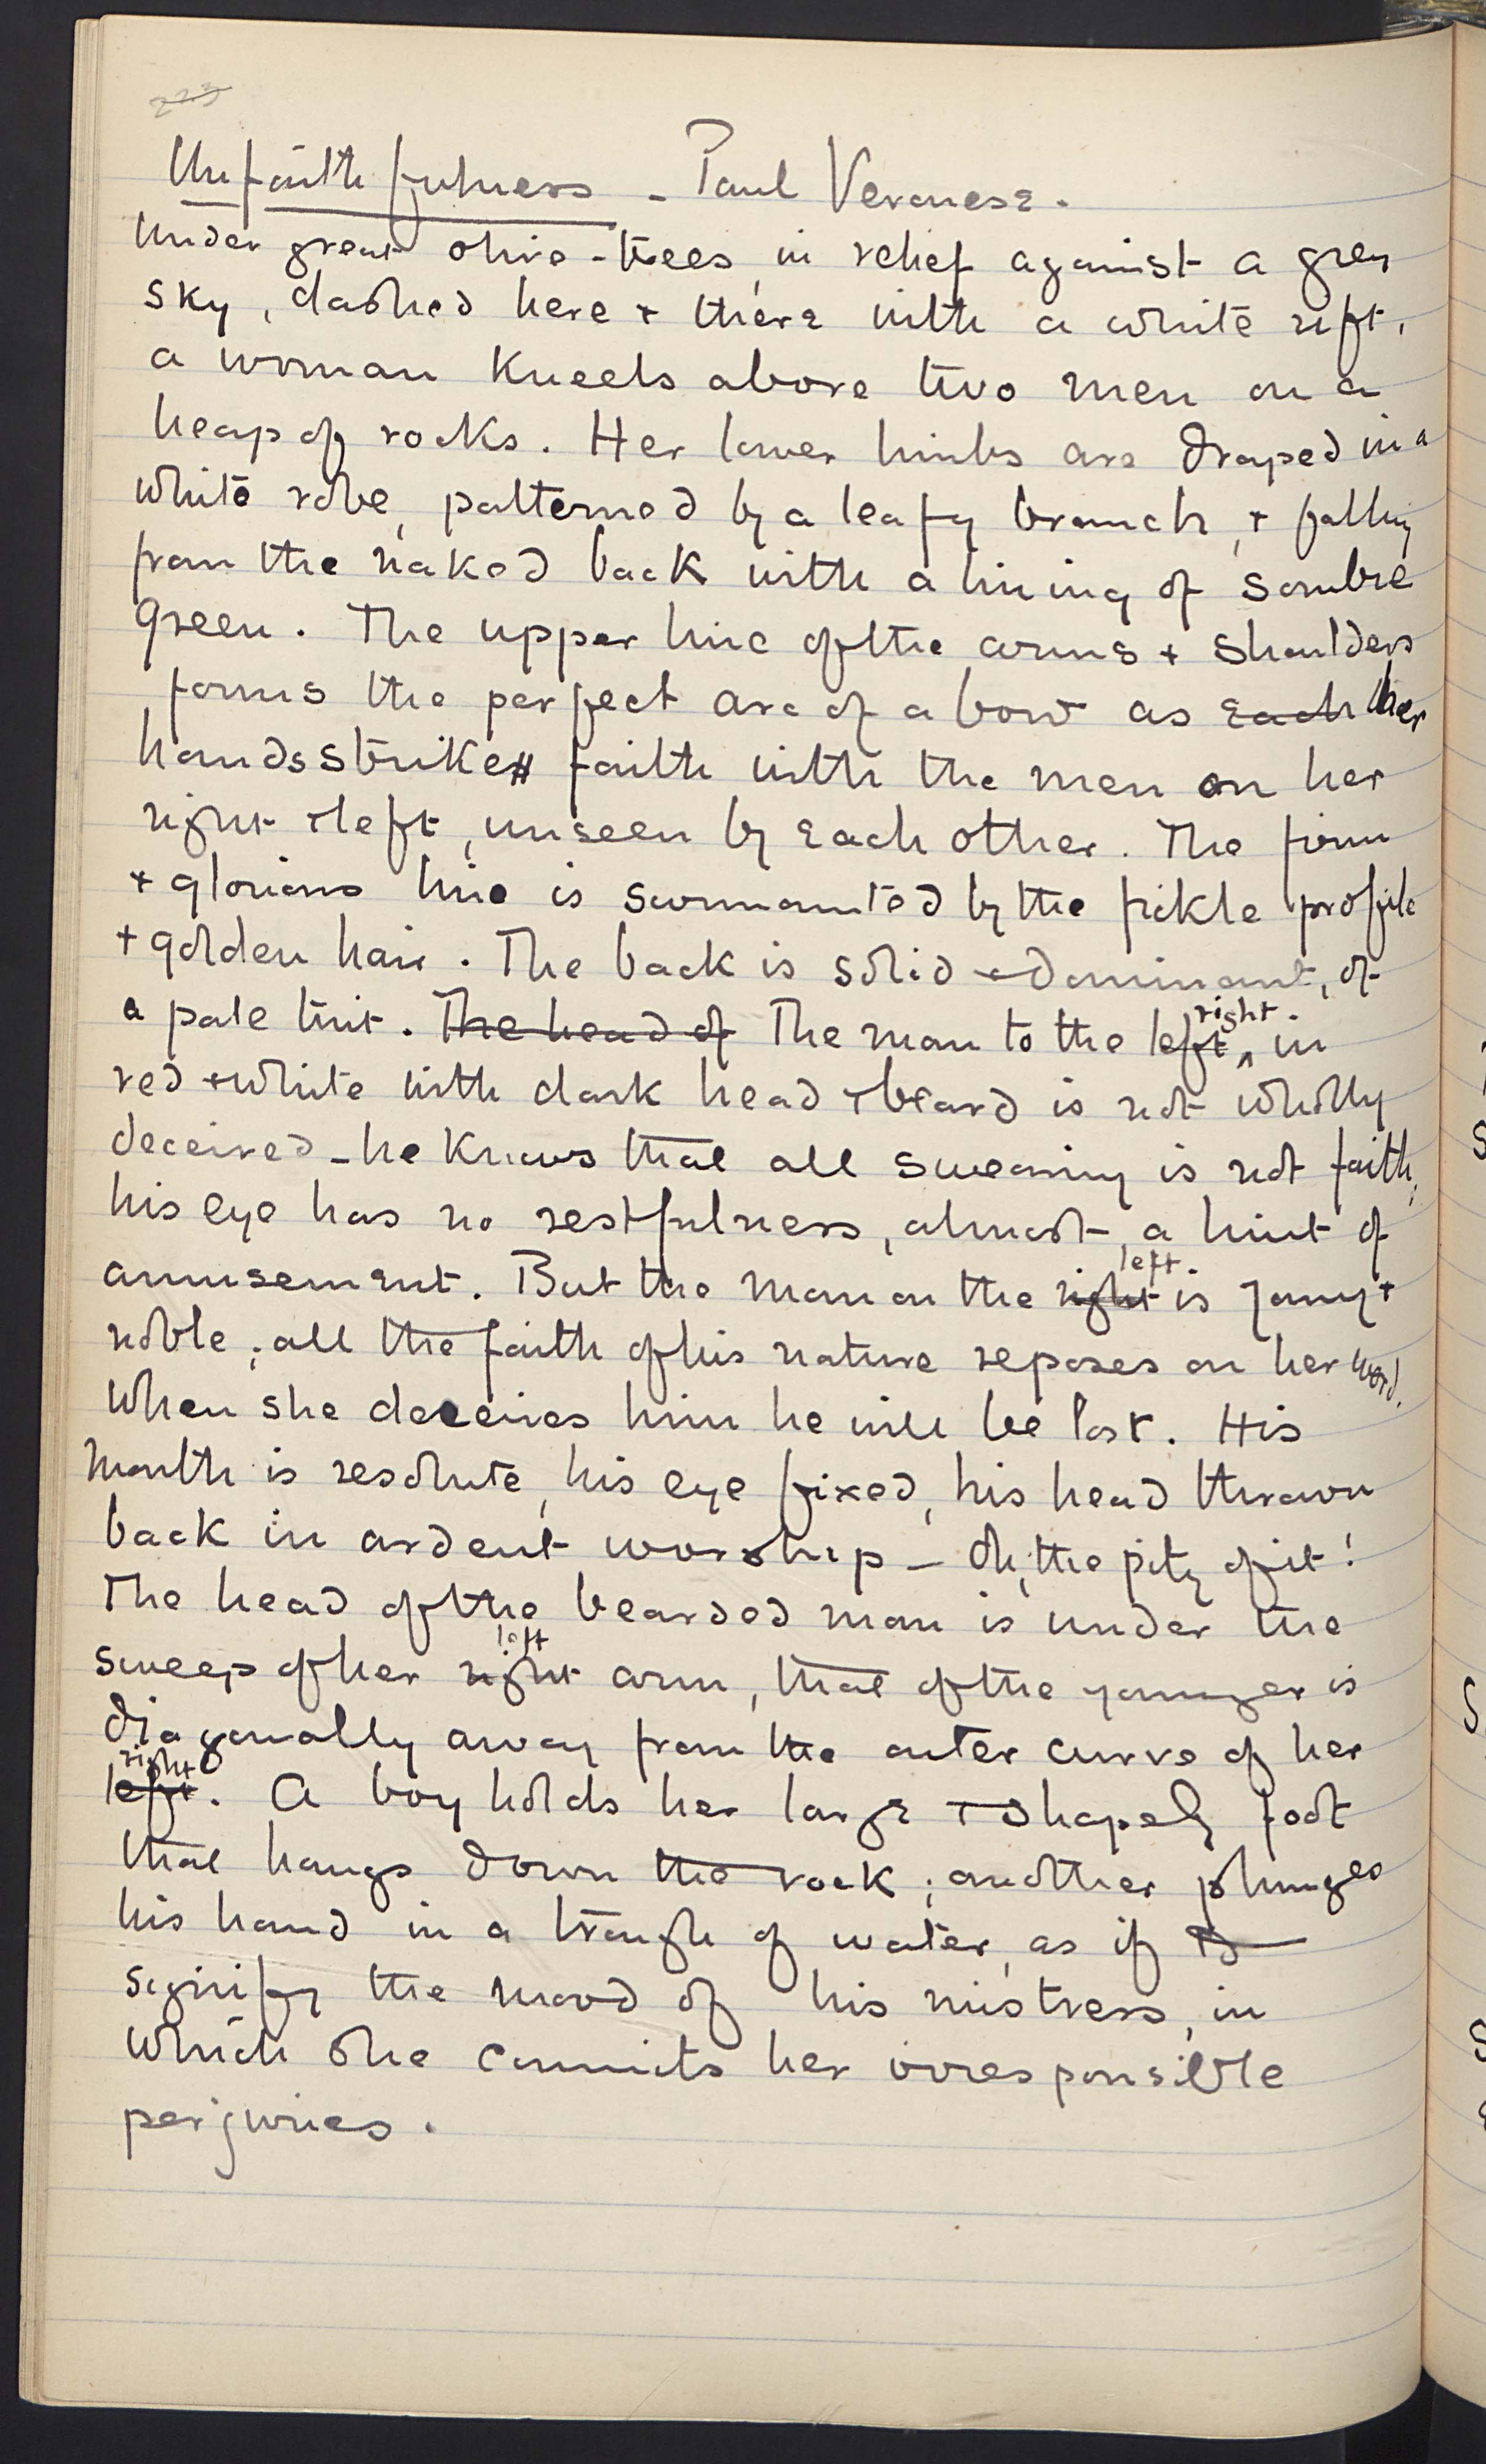 223
Unfaithfulness - Paul Veronese.
Under great olive-trees, in relief against a grey
sky, dashed here + there with a white rift,
a woman kneels above two men on a
heap of rocks. Her lower limbs are draped in a
white robe, patterned by a leafy branch, + falling
from the naked back with a lining of sombre
green. The upper line of the arms + shoulders
forms the perfect arc of a bow as each her
hands strikes faith with the men on her
right + left, unseen by each other. The firm
+ glorious line is surmounted by the fickle profile
+ golden hair. The back is solid + dominant, of
a pale tint. The head of The man to the left right. in
red + white with dark head + beard is not wholly
deceived - he knows that all swearing is not faith,
his eye has no restfulness, almost a hint of
amusement. But the man on the right left. is young +
noble; all the faith of his nature reposes on her word.
When she deceives him he will be lost. His
mouth is resolute, his eye fixed, his head thrown
back in ardent worship - Oh, the pity of it!
The head of the bearded man is under the
sweep of her right left arm, that of the younger is
diagonally away from the outer curve of her
left right. A boy holds her large + shapely foot
that hangs down the rock; another plunges
his hand in a trough of water, as if to
signify the mood of his mistress, in
which she commits her irresponsible
perjuries.